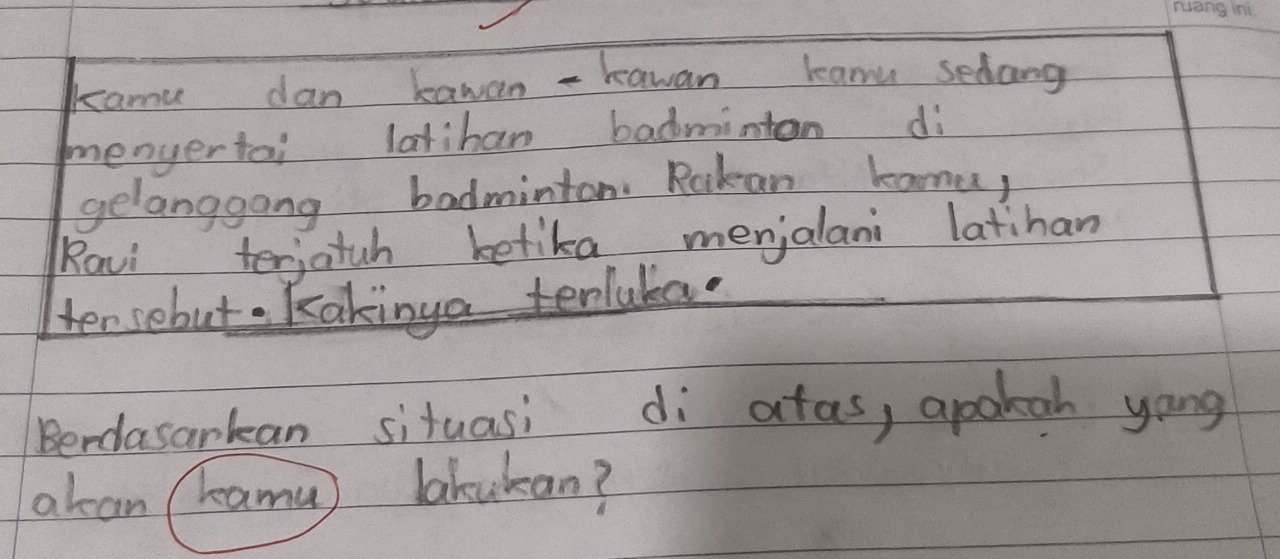 ruang ini.
Kamu dan kawan - kawan kamu sedang
menyertai latihan badminton di
gelanggang badminton. Rakan kamu,
Ravi terjatuh ketika menjalani latihan
tersebut. Kakinya terluka.
Berdasarkan situasi di atas, apakah yang
akan kamu lakukan?